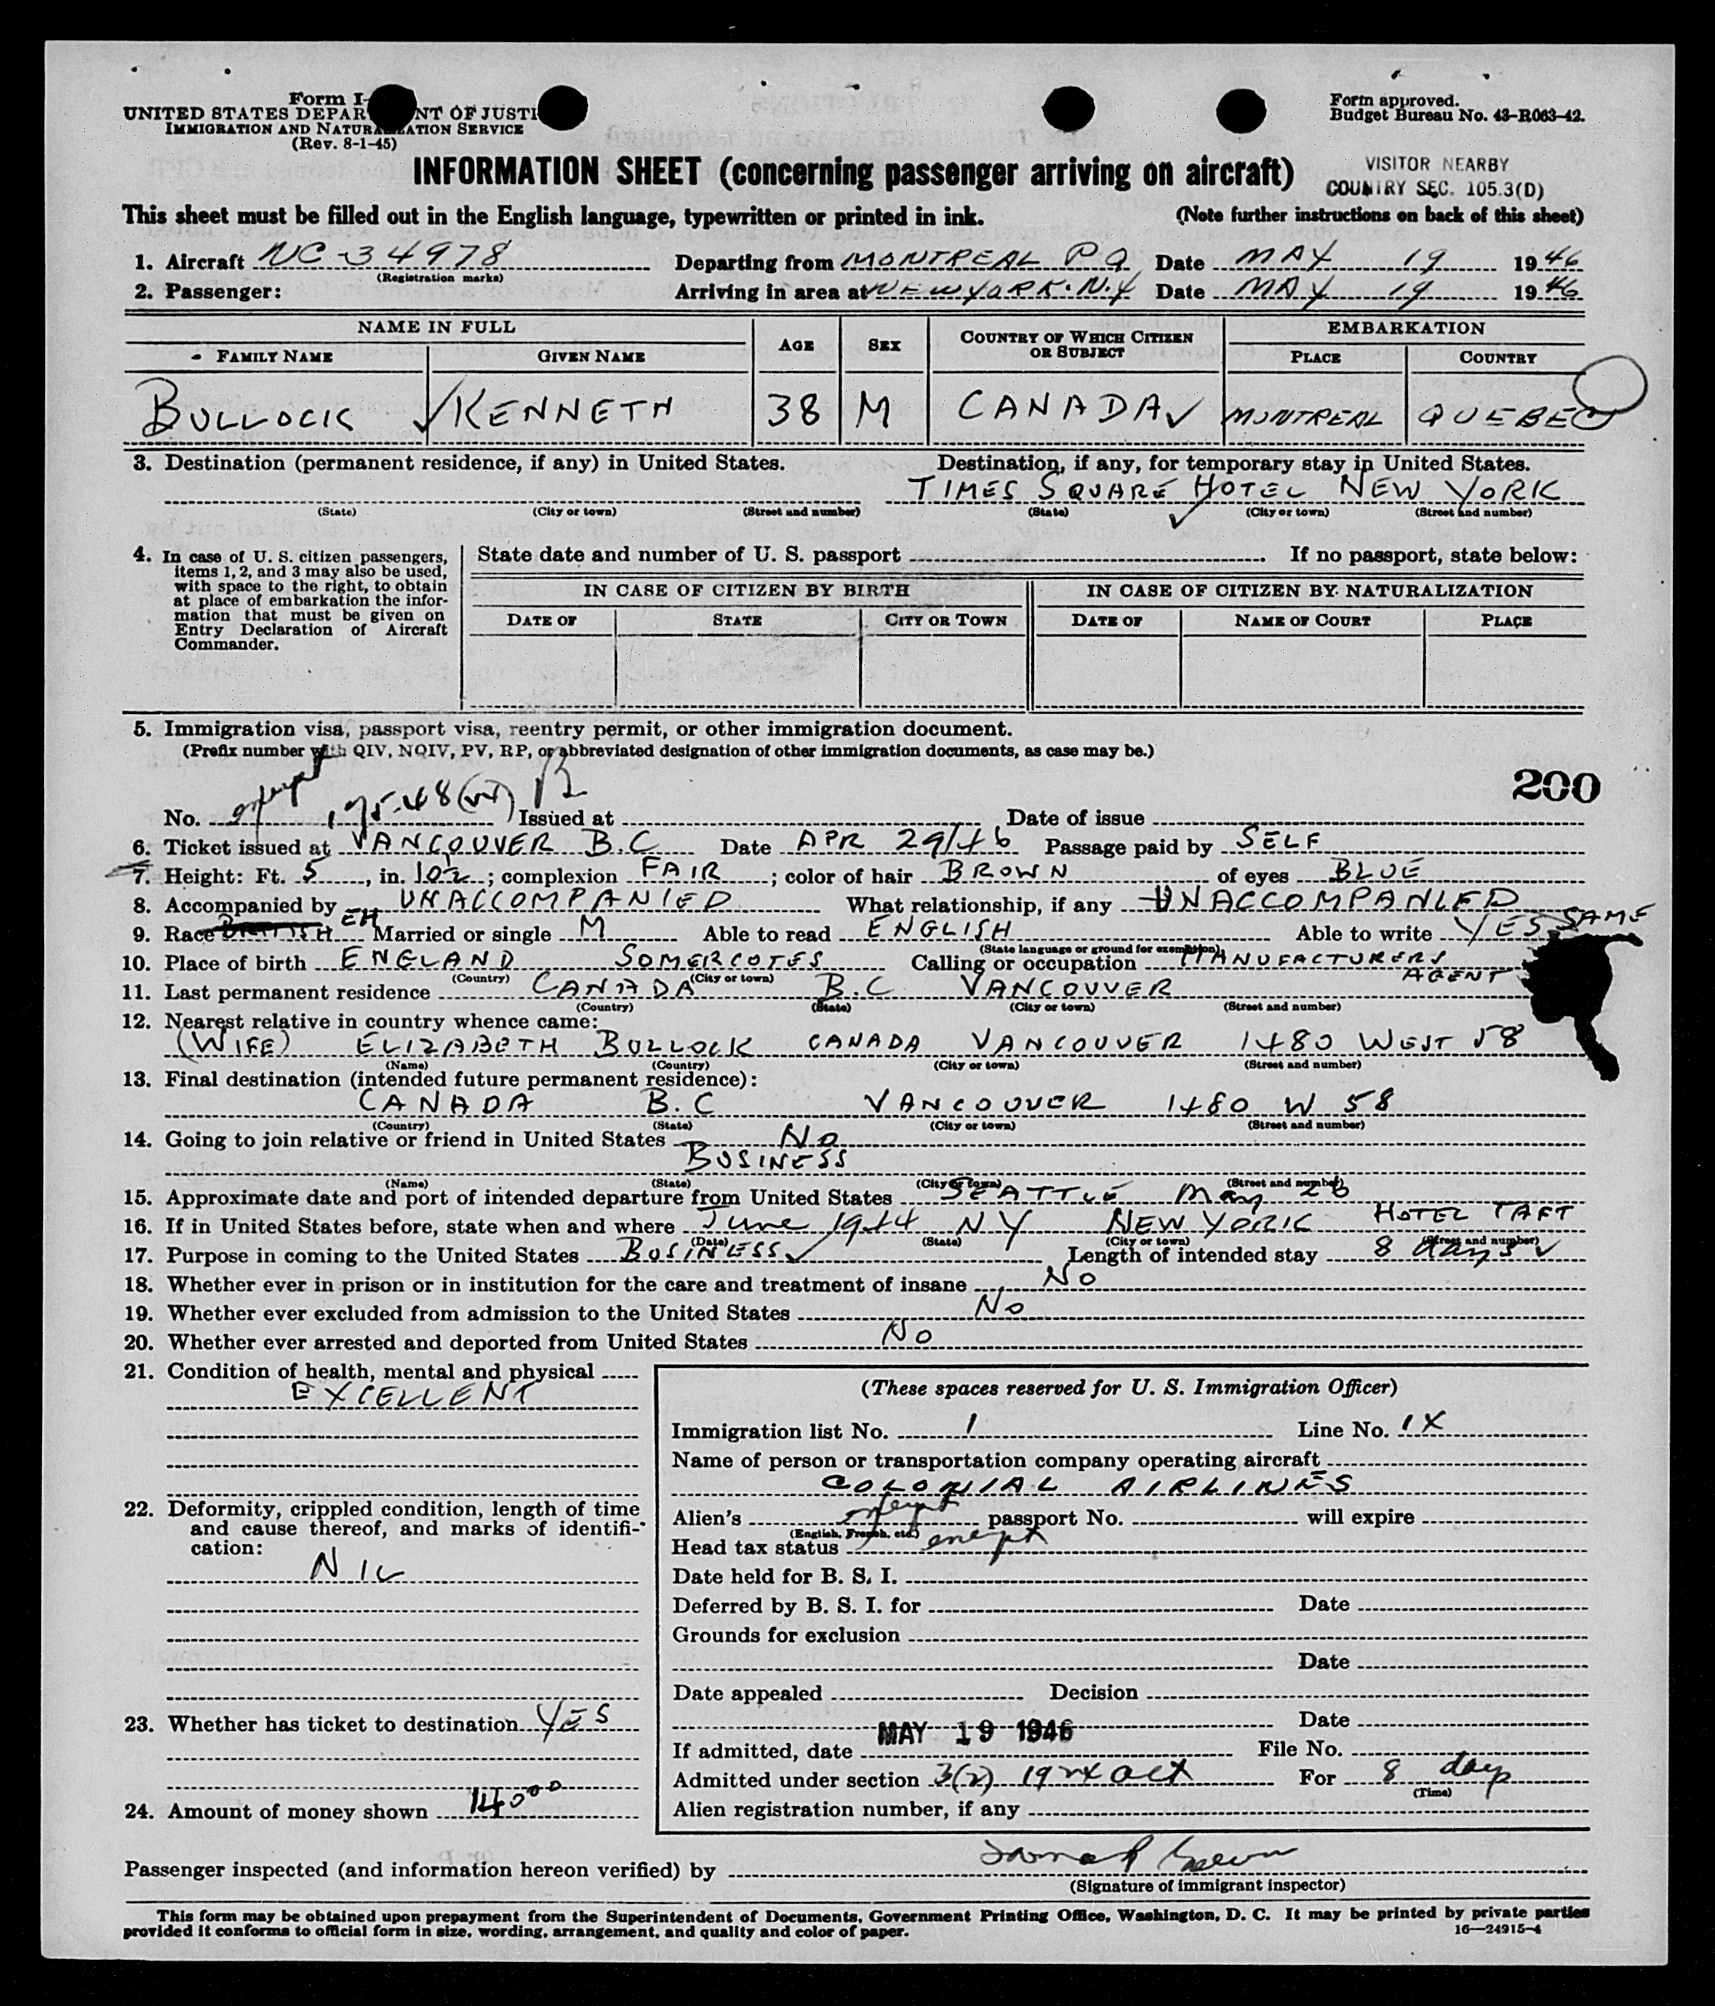 Form I-
UNITED STATES DEPAR NT OF JUSTI
IMMIGRATION AND NATURALIZATION SERVICE
(Rev. 8-1-45)
Form approved.
Budget Bureau No. 43-R063-42.
INFORMATION SHEET (concerning passenger arriving on aircraft)
VISITOR NEARBY
COUNTRY SEC. 105.3(D)
This sheet must be filled out in the English language, typewritten or printed in ink. (Note further instructions on back of this sheet)
1. Aircraft NC-34978 Departing from MONTREAL PQ Date MAY 19 1946
(Registration marks)
2. Passenger: Arriving in area at NEW YORK. N.Y Date MAY 19 1946
NAME IN FULL AGE SEX COUNTRY OF WHICH CITIZEN OR SUBJECT EMBARKATION
FAMILY NAME GIVEN NAME PLACE COUNTRY
BULLOCK ✓ KENNETH 38 M CANADA ✓ MONTREAL QUEBEC
3. Destination (permanent residence, if any) in United States. Destination, if any, for temporary stay in United States.
TIMES SQUARE HOTEL NEW YORK
(State) (City or town) (Street and number) (State) ✓ (City or town) (Street and number)
4. In case of U. S. citizen passengers, items 1, 2, and 3 may also be used, with space to the right, to obtain at place of embarkation the information that must be given on Entry Declaration of Aircraft Commander.
State date and number of U. S. passport If no passport, state below:
IN CASE OF CITIZEN BY BIRTH IN CASE OF CITIZEN BY NATURALIZATION
DATE OF STATE CITY OR TOWN DATE OF NAME OF COURT PLACE
5. Immigration visa, passport visa, reentry permit, or other immigration document.
(Prefix number with QIV, NQIV, PV, RP, or abbreviated designation of other immigration documents, as case may be.)
200
No. 175.48 Issued at Date of issue
6. Ticket issued at VANCOUVER B.C Date APR 29/46 Passage paid by SELF
7. Height: Ft. 5, in. 10½; complexion FAIR; color of hair BROWN of eyes BLUE
8. Accompanied by UNACCOMPANIED What relationship, if any UNACCOMPANIED
9. Race BRITISH EH Married or single M Able to read ENGLISH Able to write YES SAME
(State language or ground for exemption)
10. Place of birth ENGLAND SOMERCOTES Calling or occupation MANUFACTURERS AGENT
(Country) (City or town)
11. Last permanent residence CANADA B.C VANCOUVER
(Country) (State) (City or town) (Street and number)
12. Nearest relative in country whence came:
(WIFE) ELIZABETH BULLOCK CANADA VANCOUVER 1480 WEST 58
(Name) (Country) (City or town) (Street and number)
13. Final destination (intended future permanent residence):
CANADA B.C VANCOUVER 1480 W 58
(Country) (State) (City or town) (Street and number)
14. Going to join relative or friend in United States No
BUSINESS
(Name) (State) (City or town) (Street and number)
15. Approximate date and port of intended departure from United States SEATTLE May 26
16. If in United States before, state when and where June 1944 NY NEW YORK HOTEL TAFT
(Date) (State) (City or town) (Street and number)
17. Purpose in coming to the United States BUSINESS ✓ Length of intended stay 8 days ✓
18. Whether ever in prison or in institution for the care and treatment of insane No
19. Whether ever excluded from admission to the United States No
20. Whether ever arrested and deported from United States No
21. Condition of health, mental and physical
EXCELLENT
22. Deformity, crippled condition, length of time and cause thereof, and marks of identification:
NIL
23. Whether has ticket to destination YES
24. Amount of money shown 140⁰⁰
(These spaces reserved for U. S. Immigration Officer)
Immigration list No. 1 Line No. 1 X
Name of person or transportation company operating aircraft
COLONIAL AIRLINES
Alien's exempt passport No. will expire
(English, French, etc.)
Head tax status exempt
Date held for B. S. I.
Deferred by B. S. I. for Date
Grounds for exclusion
Date
Date appealed Decision
Date
If admitted, date MAY 19 1946 File No.
Admitted under section 3(2) 1924 act For 8 days
(Time)
Alien registration number, if any
Passenger inspected (and information hereon verified) by
(Signature of immigrant inspector)
This form may be obtained upon prepayment from the Superintendent of Documents, Government Printing Office, Washington, D. C. It may be printed by private parties
provided it conforms to official form in size, wording, arrangement, and quality and color of paper.
16—24915-4